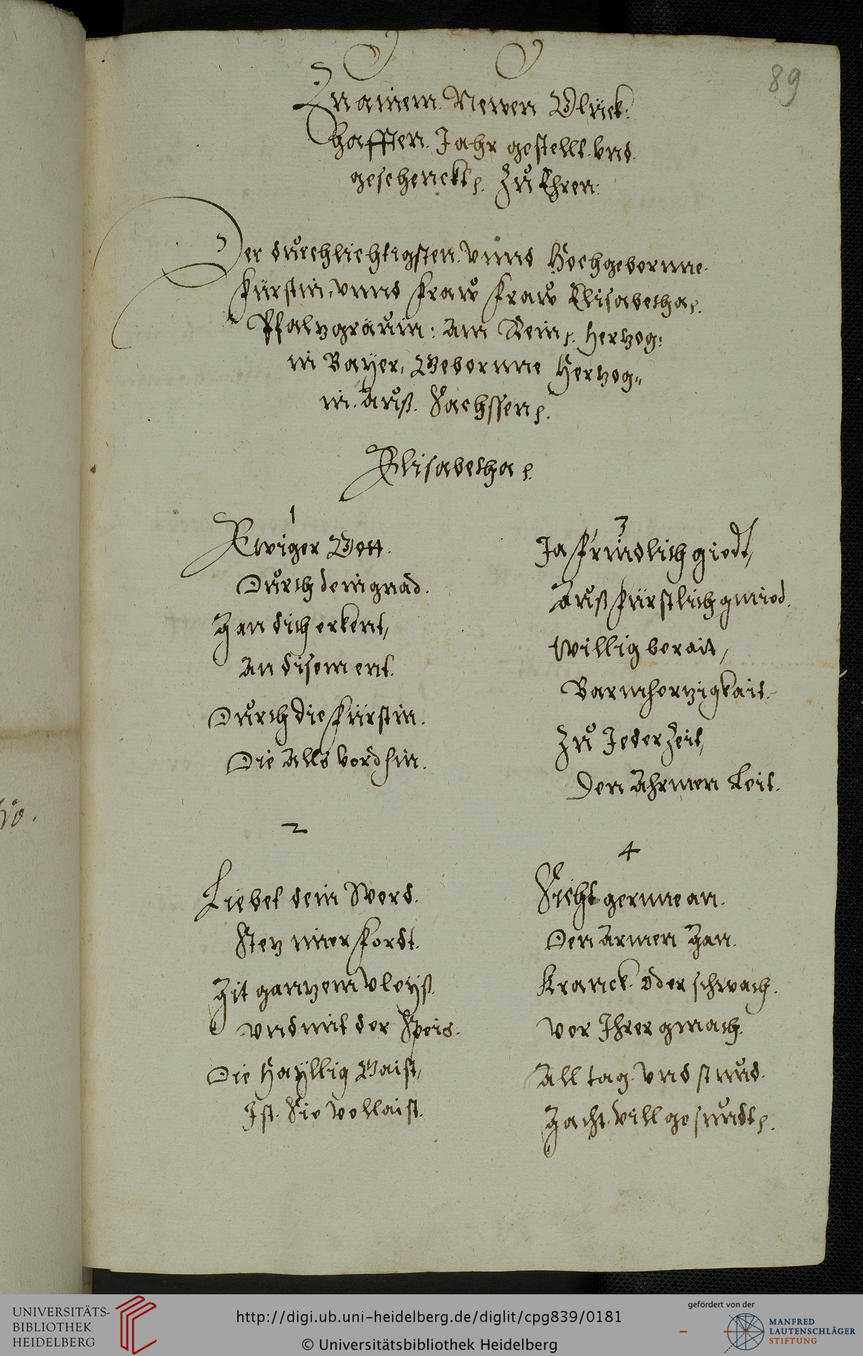 89
Zu ainem Newen Glück¬
hafften Jahr gestellt vnd
geschenckt. Zů Ehren:
Der důrchlichtigsten vnnd Hochgebornne
Fürstin, vnnd Fraw Fraw Elisabetha.
Pfalvgräuin: Am Rein. Hervog¬
in Bayer, Gebornne Hervog¬
in Aůß Sachssen.
Elisabetha.
1
Ewiger Gott.
Důrch dein gnad.
Man dich erkent,
An disem ent.
Důrch die Fürstin.
Die Alls vordhin.
2
Liebet dein Word.
Stez nimer fordt.
Mit ganvem vleyß.
vnd mit der Speis.
Die Hayllig Gaist,
Ist Sie vollaist.
3
Ja fründlich giedt,
Auß fürstlich gmied.
Willig berait,
Barmhervigkait.
Zů Jeder Zeit,
Den Ahrmen Leit.
4
Sicht gernne an.
Den Armen Man.
Kranck oder schwach.
vor Ihrer gmach.
All tag vnd stůnd.
Macht vill gesůndt.
UNIVERSITÄTS-
BIBLIOTHEK
HEIDELBERG
http://digi.ub.uni-heidelberg.de/diglit/cpg839/0181
© Universitätsbibliothek Heidelberg
gefördert von der
MANFRED
LAUTENSCHLÄGER
STIFTUNG